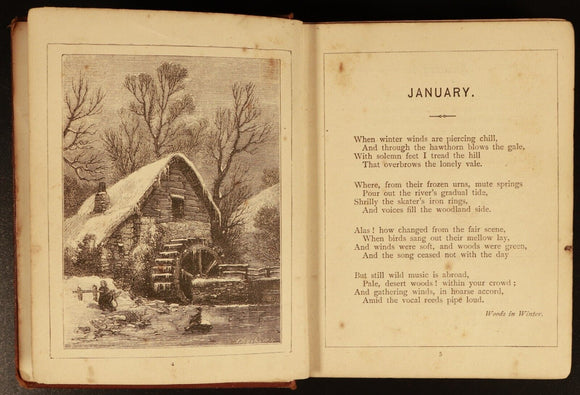 4
JANUARY.
When winter winds are piercing chill,
And through the hawthorn blows the gale,
With solemn feet I tread the hill
That overbrows the lonely vale.
Where, from their frozen urns, mute springs
Pour out the river's gradual tide,
Shrilly the skater's iron rings,
And voices fill the woodland side.
Alas! how changed from the fair scene,
When birds sang out their mellow lay,
And winds were soft, and woods were green,
And the song ceased not with the day
But still wild music is abroad,
Pale, desert woods! within your crowd;
And gathering winds, in hoarse accord,
Amid the vocal reeds pipe loud.
Woods in Winter.
5